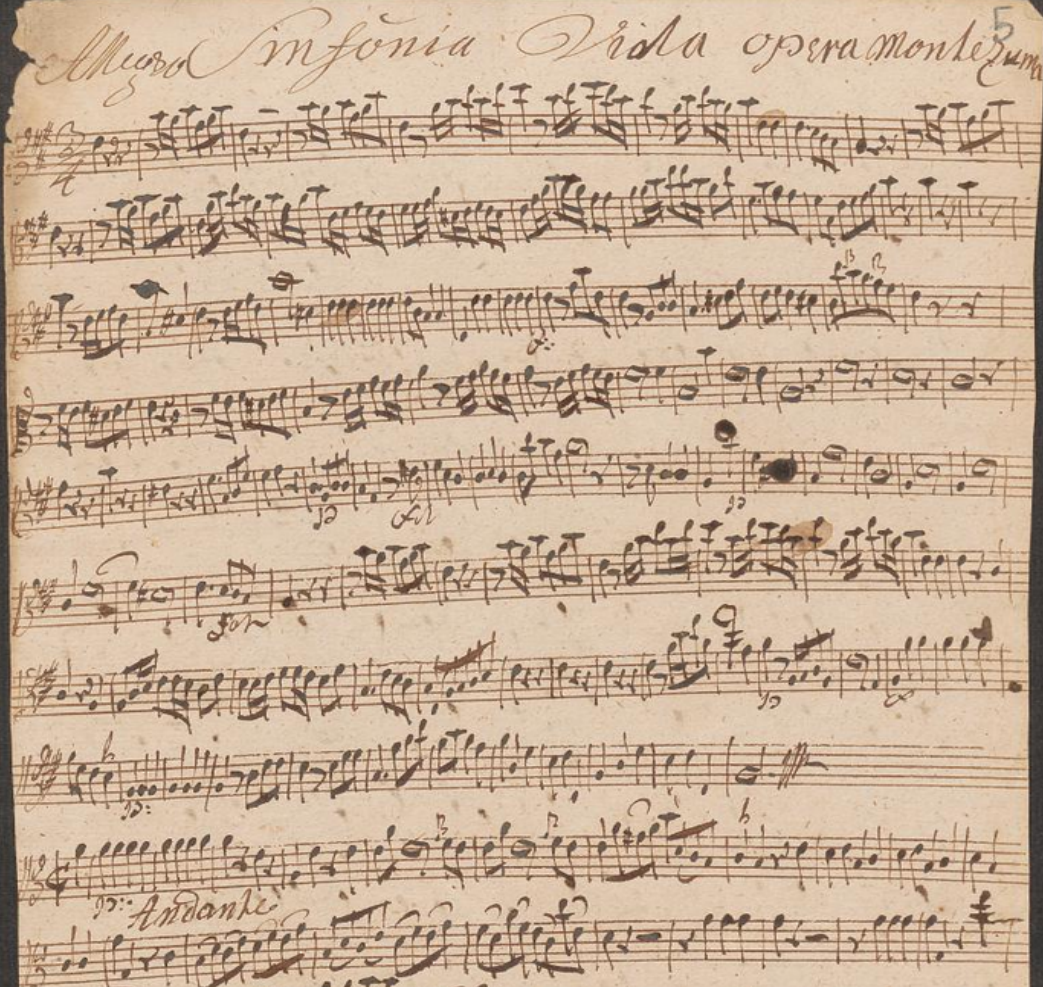 5
Allegro Sinfonia Viola opera montezuma
3
4
Andante